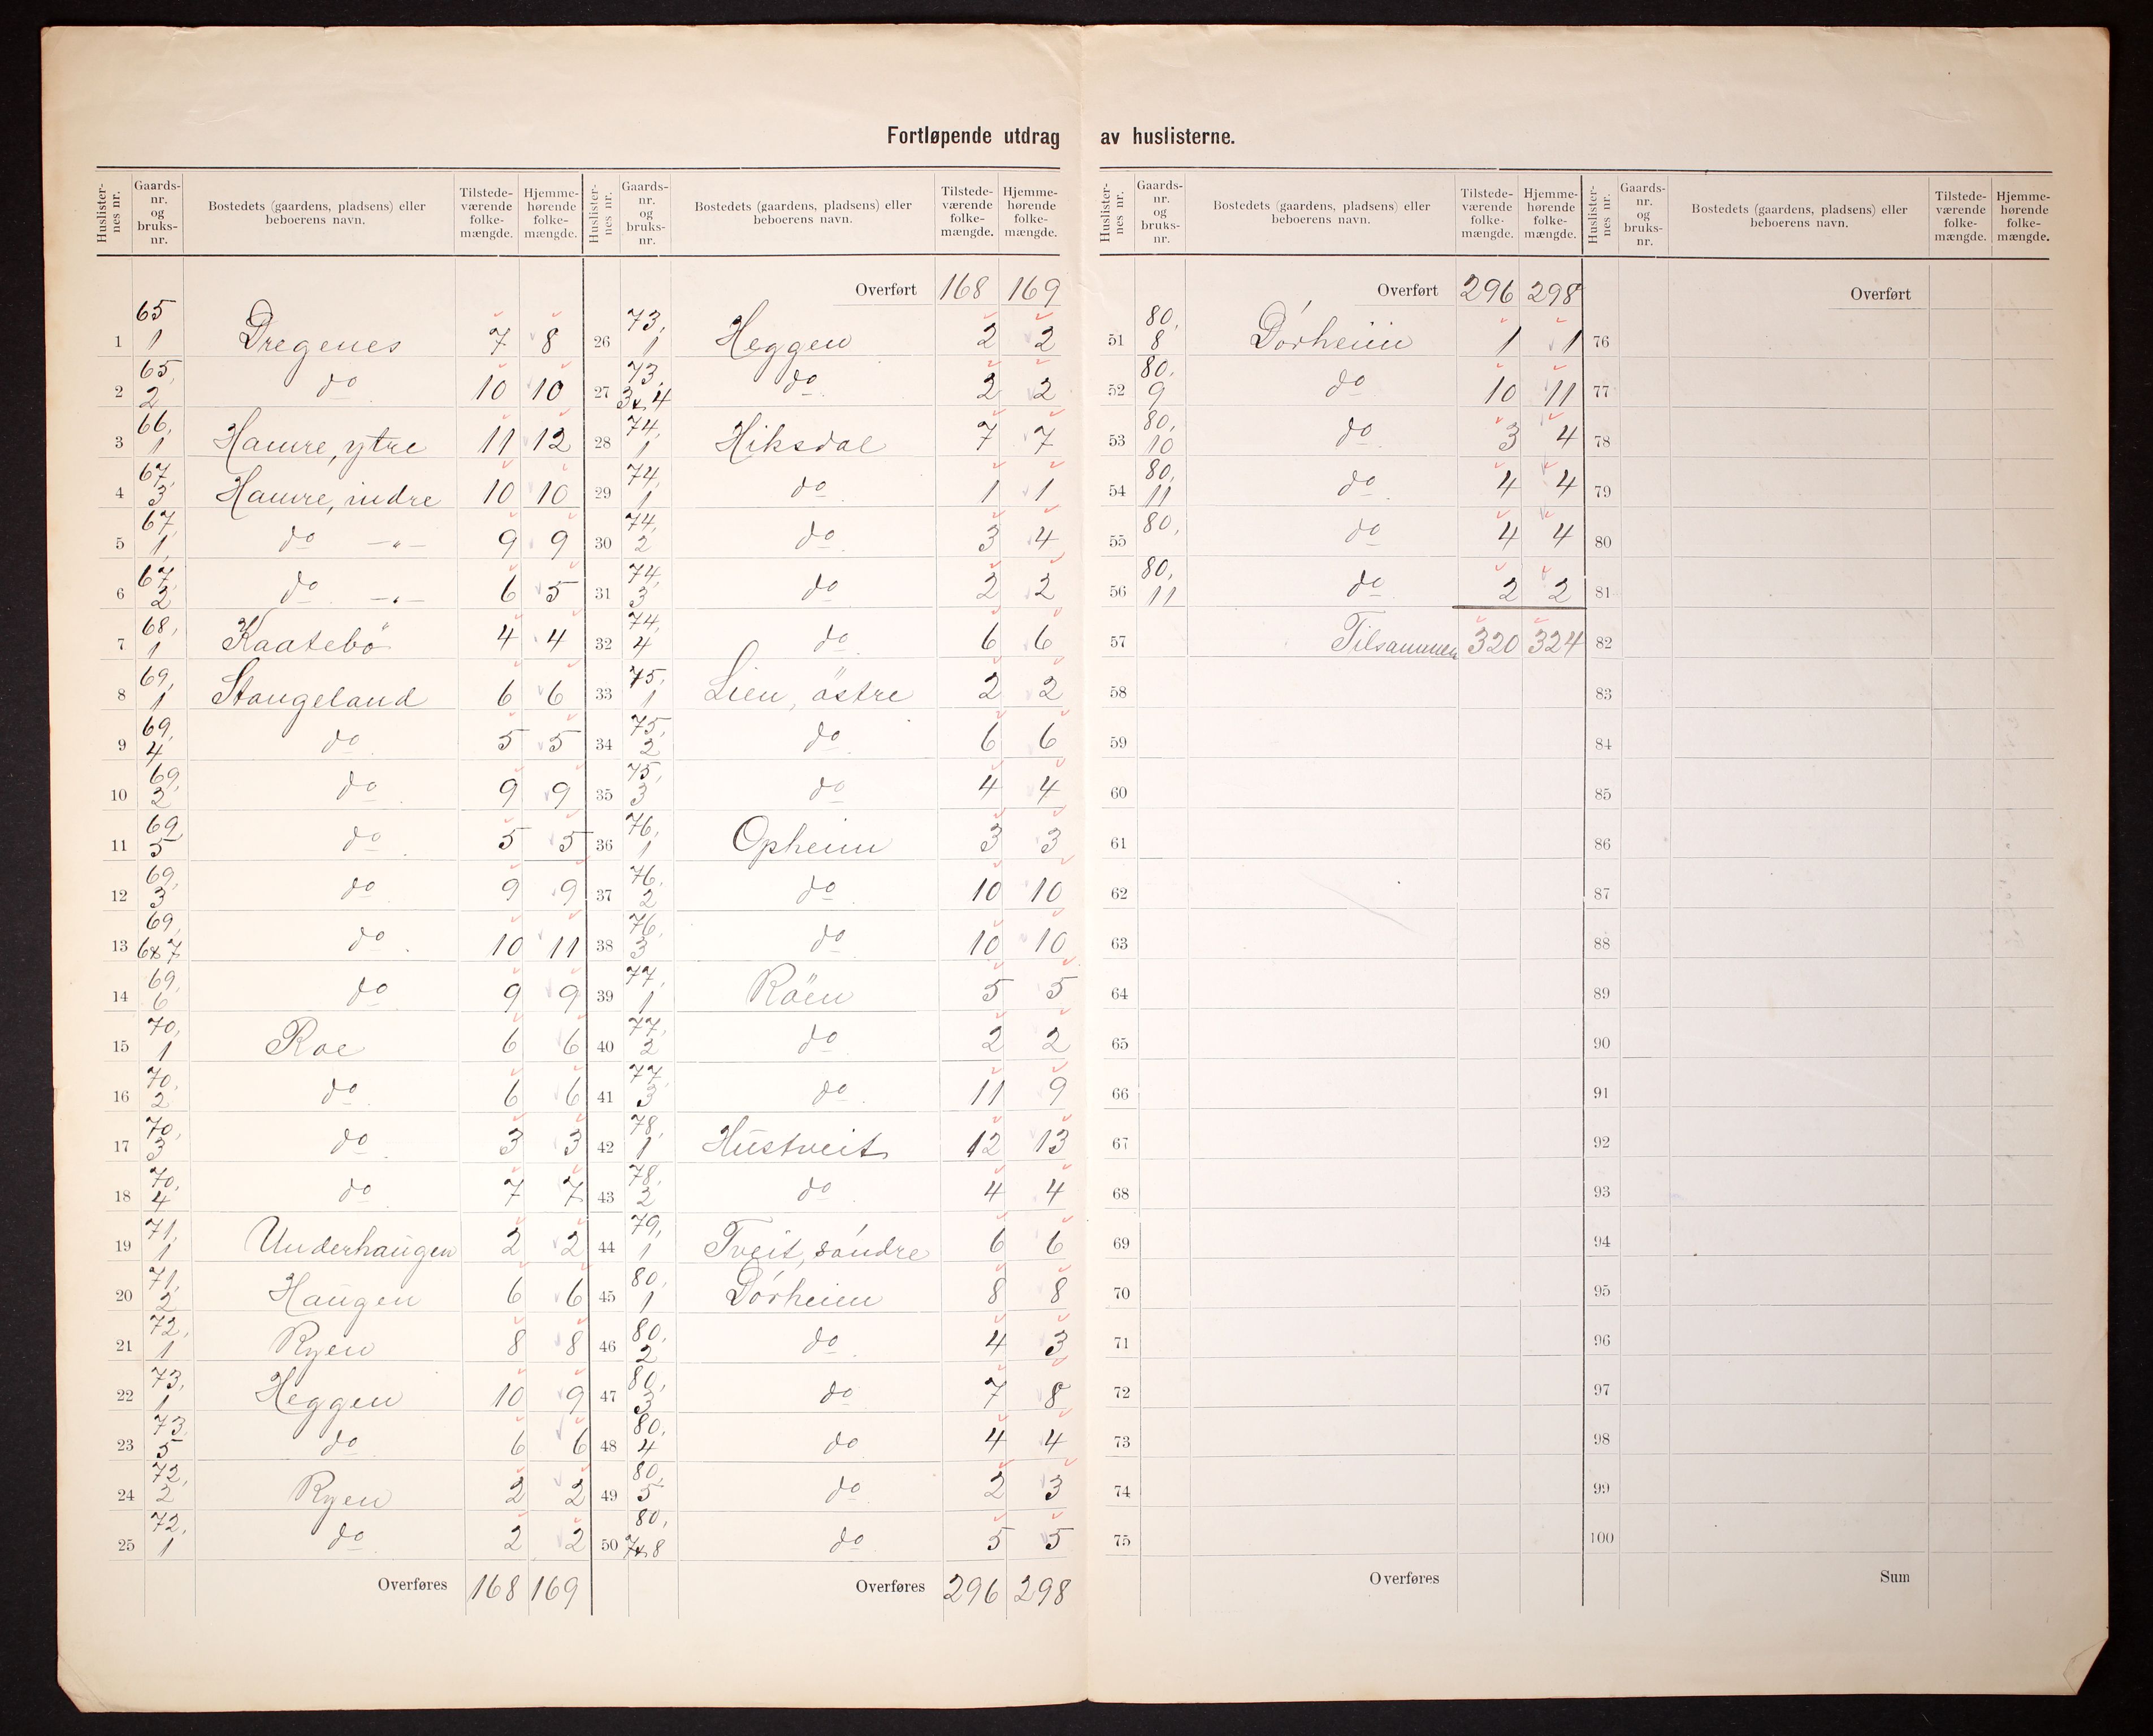 Fortløpende utdrag av huslisterne.
Huslister-nes nr. Gaards-nr. og bruks-nr. Bostedets (gaardens, pladsens) eller beboerens navn. Tilstede-værende folke-mængde. Hjemme-hørende folke-mængde.
1 65 1 Dregenes 7 8
2 65, 2 do 10 10
3 66, 1 Hamre, ytre 11 12
4 67, 3 Hamre, indre 10 10
5 67, 1 do —"— 9 9
6 67, 2 do —"— 6 5
7 68, 1 Kaatebö 4 4
8 69, 1 Stangeland 6 6
9 69, 4 do 5 5
10 69, 2 do 9 9
11 69, 5 do 5 5
12 69, 3 do 9 9
13 69, 6&7 do 10 11
14 69, 6 do 9 9
15 70, 1 Roe 6 6
16 70, 2 do 6 6
17 70, 3 do 3 3
18 70, 4 do 7 7
19 71, 1 Underhaugen 2 2
20 71, 2 Haugen 6 6
21 72, 1 Ryen 8 8
22 73, 1 Heggen 10 9
23 73, 5 do 6 6
24 72, 2 Ryen 2 2
25 72, 1 do 2 2
Overføres 168 169
Huslister-nes nr. Gaards-nr. og bruks-nr. Bostedets (gaardens, pladsens) eller beboerens navn. Tilstede-værende folke-mængde. Hjemme-hørende folke-mængde.
Overført 168 169
26 73, 1 Heggen 2 2
27 73, 3&4 do 2 2
28 74, 1 Hiksdal 7 7
29 74, 1 do 1 1
30 74, 2 do 3 4
31 74, 3 do 2 2
32 74, 4 do 6 6
33 75, 1 Lien, östre 2 2
34 75, 2 do 6 6
35 75, 3 do 4 4
36 76, 1 Opheim 3 3
37 76, 2 do 10 10
38 76, 3 do 10 10
39 77, 1 Röen 5 5
40 77, 2 do 2 2
41 77, 3 do 11 9
42 78, 1 Hustveit 12 13
43 78, 2 do 4 4
44 79, 1 Tveit, söndre 6 6
45 80, 1 Dörheim 8 8
46 80, 2 do 4 3
47 80, 3 do 7 8
48 80, 4 do 4 4
49 80, 5 do 2 3
50 80, 7&8 do 5 5
Overføres 296 298
Huslister-nes nr. Gaards-nr. og bruks-nr. Bostedets (gaardens, pladsens) eller beboerens navn. Tilstede-værende folke-mængde. Hjemme-hørende folke-mængde.
Overført 296 298
51 80, 8 Dörheim 1 1
52 80, 9 do 10 11
53 80, 10 do 3 4
54 80, 11 do 4 4
55 80, do 4 4
56 80, 11 do 2 2
57 Tilsammen 320 324
58
59
60
61
62
63
64
65
66
67
68
69
70
71
72
73
74
75
Overføres
Huslister-nes nr. Gaards-nr. og bruks-nr. Bostedets (gaardens, pladsens) eller beboerens navn. Tilstede-værende folke-mængde. Hjemme-hørende folke-mængde.
Overført
76
77
78
79
80
81
82
83
84
85
86
87
88
89
90
91
92
93
94
95
96
97
98
99
100
Sum